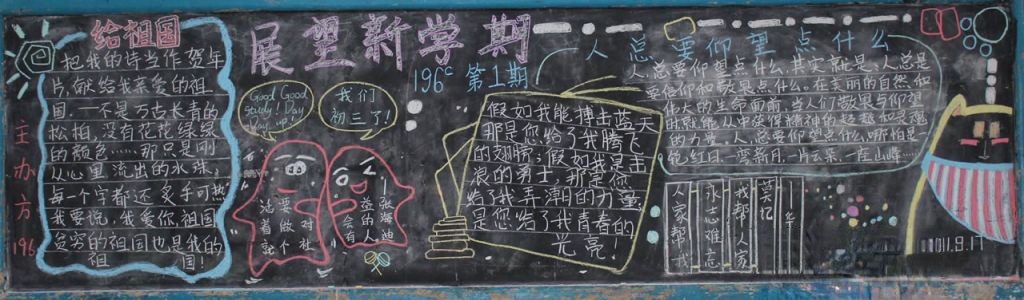 给祖国
把我的诗当作贺年
片,献给我亲爱的祖
国,一不是万古长青的
松柏,没有花花绿绿
的颜色……那只是刚
从心里流出的水珠,
每一个字都还炙手可热
我要说,我爱你祖国
贫穷的祖国也是我的
祖国!
主办方
196
展望新学期
196c 第1期
Good Good
Study! Day
Day up!
我们
初三了!
活着就
要做个
对社
会有
益的人
—张海迪
假如我能搏击蓝天
那是您给了我腾飞
的翅膀;假如我是击
浪的勇士,那是您
给了我弄潮的力量
是您给了我青春的
光亮!
人总要仰望点什么
人总要仰望点什么,其实就是,人总是
要信仰和敬畏点什么。在美丽的自然和
伟大的生命面前,当人们敬畏与仰望
时就能从中获得精神的超越和灵魂
的力量。人总要仰望点什么,哪怕是一
轮红日,一弯新月,一片云朵,一座山峰……
人家帮我
永志难忘
我帮人家
莫忆
2011.9.17